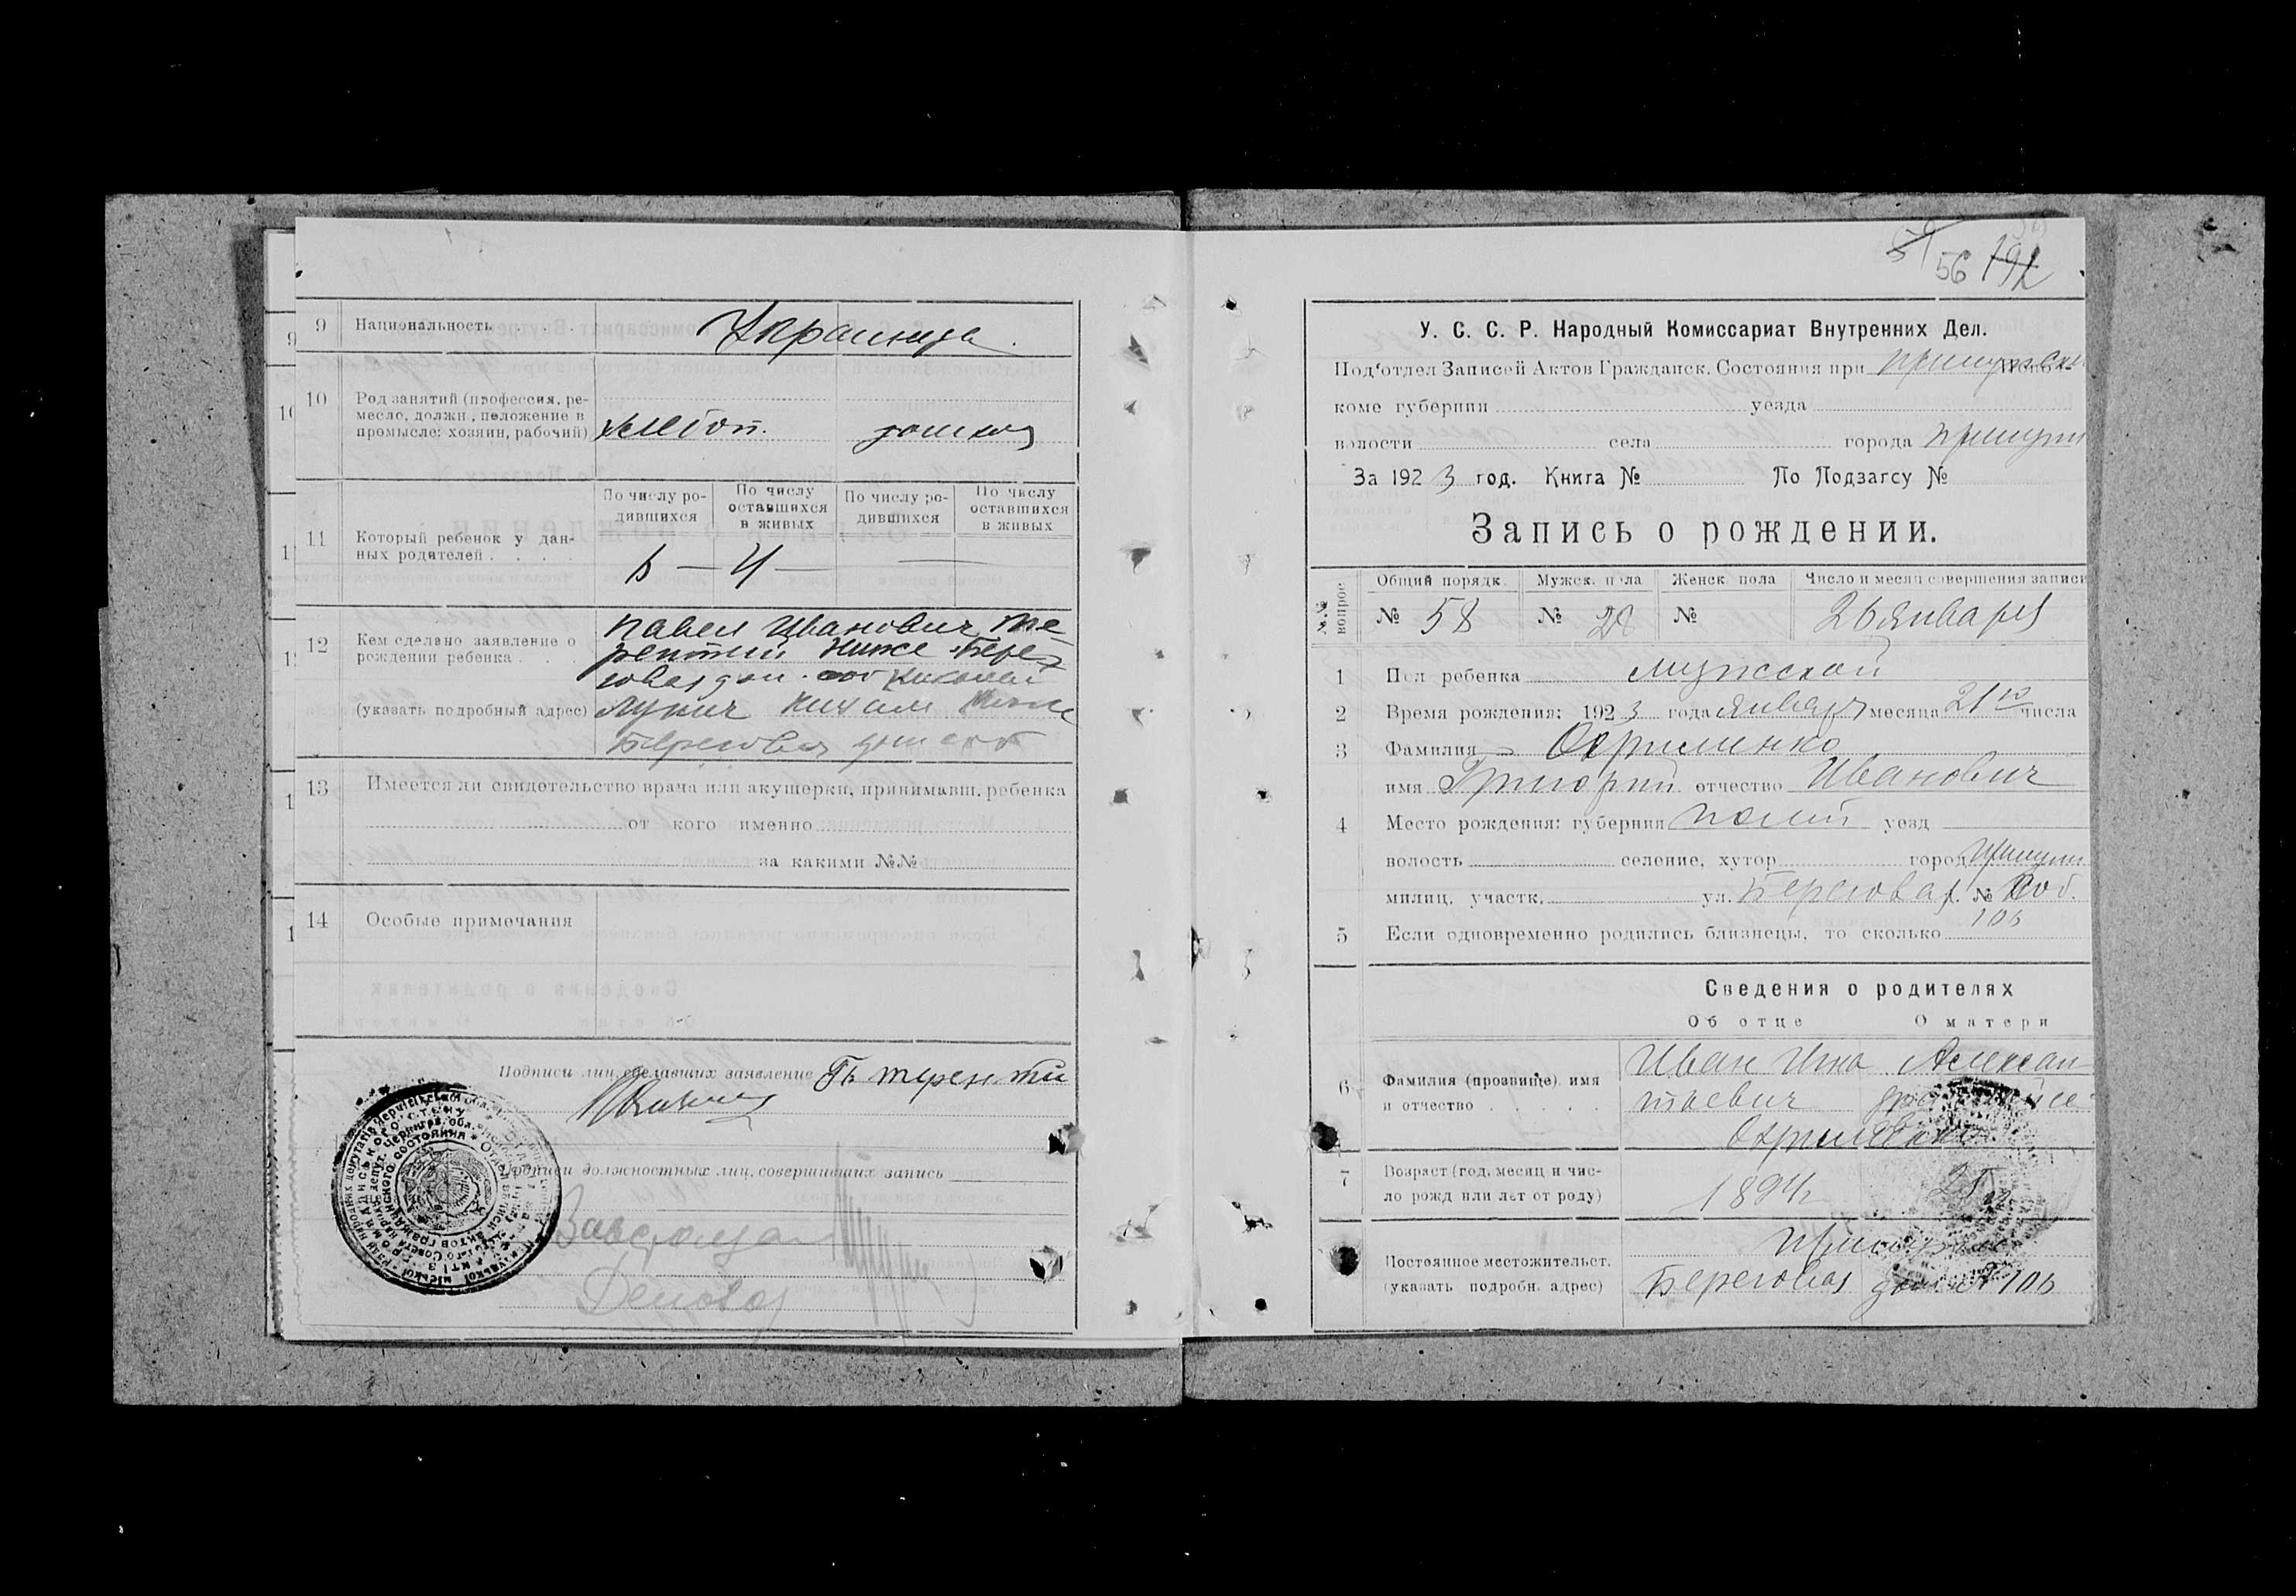 9 Национальность Украинцы.
10 Род занятий (профессия, ре-
месло, должн., положение в
промысле: хозяин, рабочий) хлебоп.
По числу ро-
дившихся
По числу
оставшихся
в живых
По числу ро-
дившихся
По числу
оставшихся
в живых
11 Который ребенок у дан-
ных родителей . . . . 6 — 4 —
12 Кем сделано заявление о
рождении ребенка . . .
(указать подробный адрес)
Павел Иванович Те
рентий Ниже-Берего
Лукич
Береговая дом
13 Имеется ли свидетельство врача или акушерки, принимавш. ребенка
от кого именно
за какими №№
14 Особые примечания
Подписи лиц, сделавших заявление
Подписи должностных лиц, совершивших запись
56 192
У. С. С. Р. Народный Комиссариат Внутренних Дел.
Под'отдел Записей Актов Гражданск. Состояния при
коме губернии уезда
волости села города Прилуки
За 1923 год. Книга № По Подзагсу №
Запись о рождении.
№№ вопрос.
Общий порядк. Мужск. пола Женск. пола Число и месяц совершения записи
№ 58 № 28 № 26 января
1 Пол ребенка мужской
2 Время рождения: 1923 года января месяца 21го числа
3 Фамилия Охрименко
имя Григорий отчество Иванович
4 Место рождения: губерния Полт уезд
волость селение, хутор город Прилуки
милиц. участк. ул. Береговая. № соб.
106
5 Если одновременно родились близнецы, то сколько
Сведения о родителях
Об отце О матери
6 Фамилия (прозвище) имя
и отчество . . . . .
Иван Игна Алексан
тьевич
Охрименко
7 Возраст (год, месяц и чис-
ло рожд или лет от роду) 1894
Постоянное местожительст.
(указать подробн. адрес)
Береговая дом 106